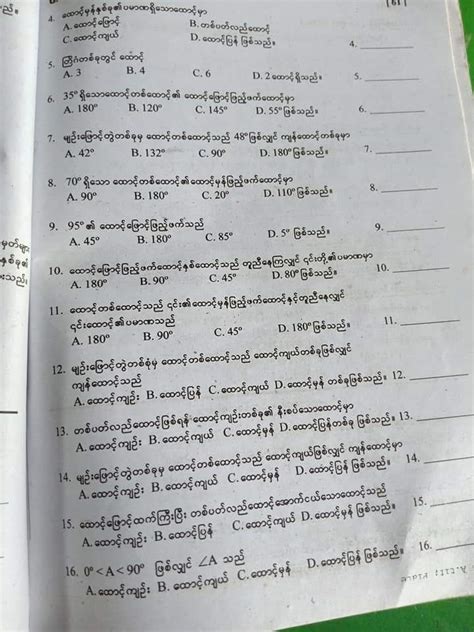 [ 61 ]
4. ထောင့်မှန်နှစ်ခု၏ပမာဏရှိသောထောင့်မှာ
A. ထောင့်ဖြောင့် B. တစ်ပတ်လည်ထောင့်
C. ထောင့်ကျယ် D. ထောင့်ပြန် ဖြစ်သည်။ 4.
5. တြိဂံတစ်ခုတွင် ထောင့်
A. 3 B. 4 C. 6 D. 2 ထောင့်ရှိသည်။ 5.
6. 35° ရှိသောထောင့်တစ်ထောင့်၏ ထောင့်ဖြောင့်ဖြည့်ဖက်ထောင့်မှာ
A. 180° B. 120° C. 145° D. 55° ဖြစ်သည်။ 6.
7. မျဉ်းဖြောင့်တွဲတစ်ခုမှ ထောင့်တစ်ထောင့်သည် 48° ဖြစ်လျှင် ကျန်ထောင့်တစ်ခုမှာ
A. 42° B. 132° C. 90° D. 180° ဖြစ်သည်။ 7.
8. 70° ရှိသော ထောင့်တစ်ထောင့်၏ထောင့်မှန်ဖြည့်ဖက်ထောင့်မှာ
A. 90° B. 180° C. 20° D. 110° ဖြစ်သည်။ 8.
9. 95° ၏ ထောင့်ဖြောင့်ဖြည့်ဖက်သည်
A. 45° B. 180° C. 85° D. 5° ဖြစ်သည်။ 9.
10. ထောင့်ဖြောင့်ဖြည့်ဖက်ထောင့်နှစ်ထောင့်သည် တူညီနေကြလျှင် ၎င်းတို့၏ပမာဏမှာ
A. 180° B. 90° C. 45° D. 80° ဖြစ်သည်။ 10.
11. ထောင့်တစ်ထောင့်သည် ၎င်း၏ထောင့်မှန်ဖြည့်ဖက်ထောင့်နှင့်တူညီနေလျှင်
၎င်းထောင့်၏ပမာဏသည်
A. 180° B. 90° C. 45° D. 180° ဖြစ်သည်။ 11.
12. မျဉ်းဖြောင့်တွဲတစ်စုံမှ ထောင့်တစ်ထောင့်သည် ထောင့်ကျယ်တစ်ခုဖြစ်လျှင်
ကျန်ထောင့်သည်
A. ထောင့်ကျဉ်း B. ထောင့်ပြန် C. ထောင့်ကျယ် D. ထောင့်မှန် တစ်ခုဖြစ်သည်။ 12.
13. တစ်ပတ်လည်ထောင့်ဖြစ်ရန် ထောင့်ကျဉ်းတစ်ခု၏ နီးစပ်သောထောင့်မှာ
A. ထောင့်ကျဉ်း B. ထောင့်ကျယ် C. ထောင့်မှန် D. ထောင့်ပြန်တစ်ခု ဖြစ်သည်။ 13.
14. မျဉ်းဖြောင့်တွဲတစ်ခုမှ ထောင့်တစ်ထောင့်သည် ထောင့်ကျယ်ဖြစ်လျှင် ကျန်ထောင့်မှာ
A. ထောင့်ကျဉ်း B. ထောင့်ကျယ် C. ထောင့်မှန် D. ထောင့်ပြန် ဖြစ်သည်။ 14.
15. ထောင့်ဖြောင့်ထက်ကြီးပြီး တစ်ပတ်လည်ထောင့်အောက်ငယ်သောထောင့်သည်
A. ထောင့်ကျဉ်း B. ထောင့်ပြန် C. ထောင့်ကျယ် D. ထောင့်မှန် ဖြစ်သည်။ 15.
16. 0° < A < 90° ဖြစ်လျှင် ∠A သည်
A. ထောင့်ကျဉ်း B. ထောင့်ကျယ် C. ထောင့်မှန် D. ထောင့်ပြန် ဖြစ်သည်။ 16.